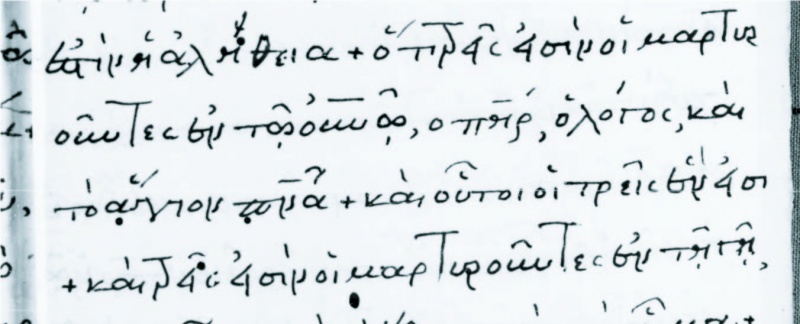 ἐστὶν ἡ ἀλήθεια + ὅτι τρεῖς εἰσὶν οἱ μαρτυρ
οῦντες ἐν τῶ οὐνῶ, ὁ πηρ, ὁ λόγος, καὶ
τὸ ἅγιον πνα + καὶ οὗτοι οἱ τρεῖς ἕν εἰσι
+ καὶ τρεῖς εἰσὶν οἱ μαρτυροῦντες ἐν τῆ γῆ,